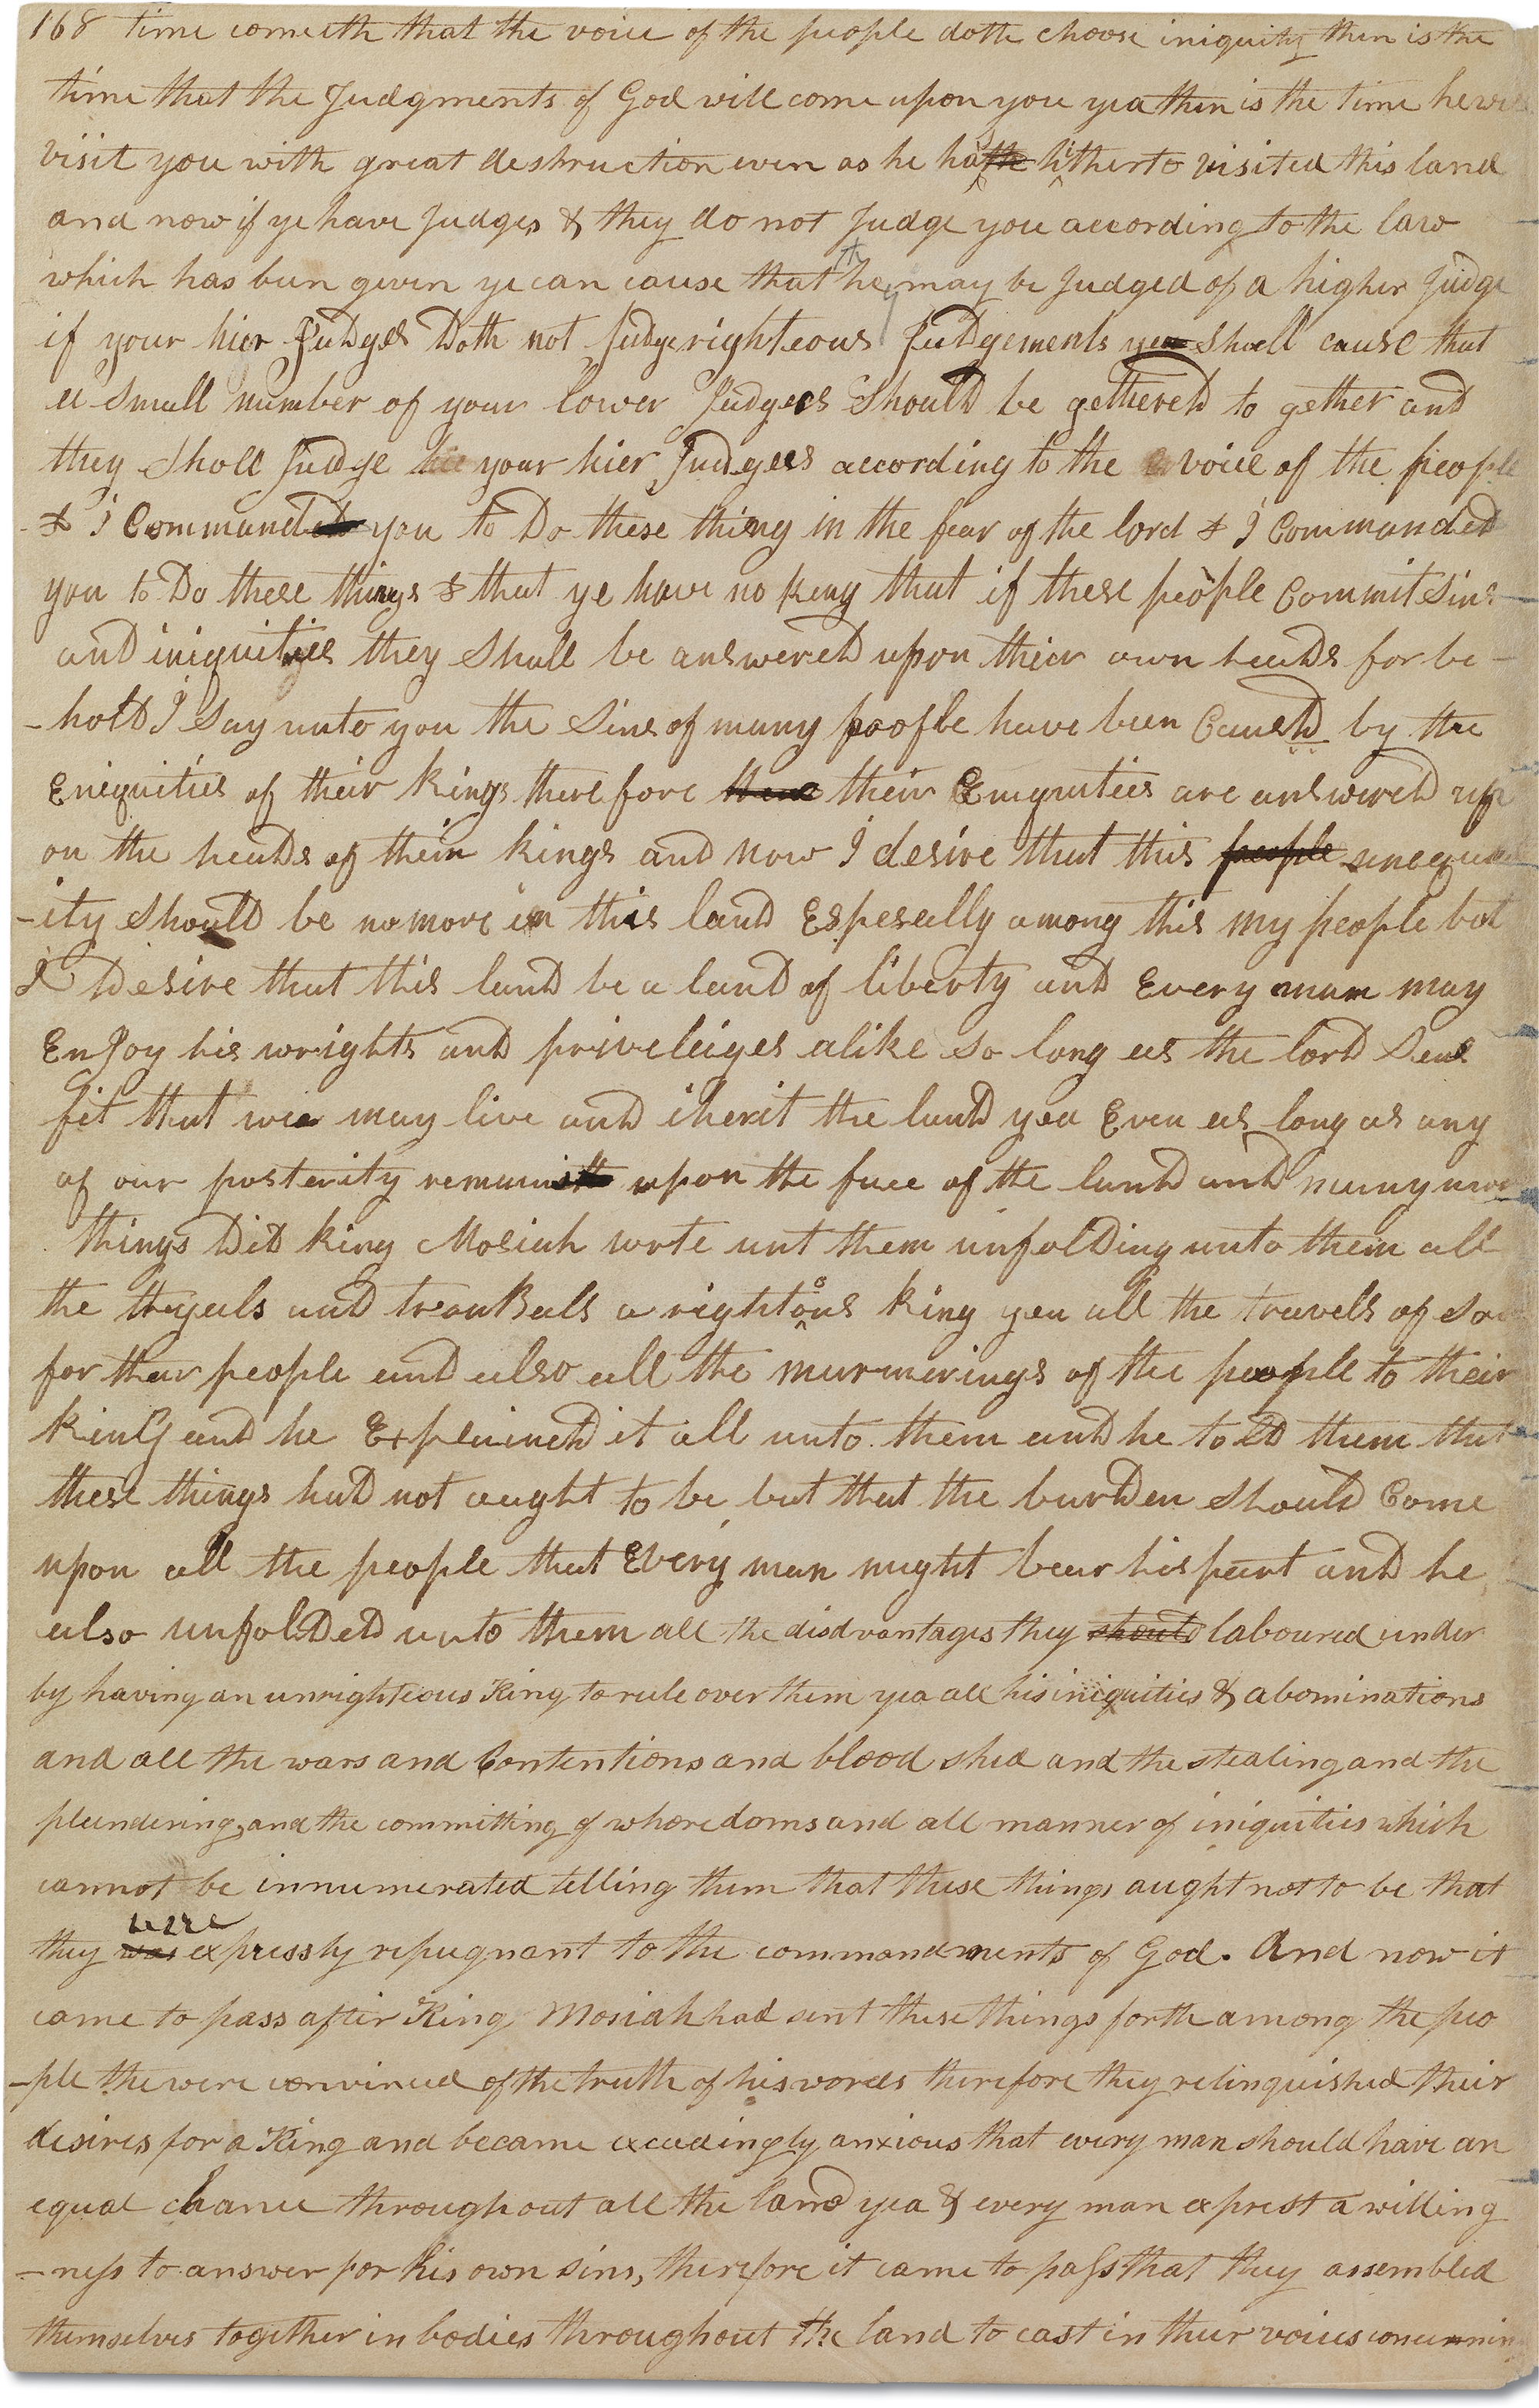 168 time cometh that the voice of the people doth choose iniquity then is the
time that the Judgments of God will come upon you yea then is the time he will
visit you with great destruction even as he hath hitherto visited this land
and now if ye have Judges & they do not Judge you according to the law
which has been given ye can cause that they may be Judged of a higher Judge
if your hier Judges Doth not Judge righteous Judgements ye shall cause that
a small number of your lower Judges Should be gethereD to gether and
they Shall Judge your hier Judges according to the voice of the people
& I Command you to Do these thing in the fear of the lord & I CommandeD
you to Do these things & that ye have no King that if these people Commit Sins
and iniquities they Shall be answereD upon their own heads for be-
-holD I Say unto you the Sins of many people have been CausD by the
Eniquities of their Kings therefore their Eniquities are answereD up
on the heads of their kings and now I desire that this people inequal
-ity ShoulD be no more in this land Espesially among this my people but
I Desire that this land be a land of liberty and Every man may
EnJoy his wrights and priveleiges alike So long as the lorD Sees
fit that we may live and iherit the land yea Even as long as any
of our posterity remain upon the face of the land and many more
things DiD King Mosiah wrote unt them unfolDing unto them all
the tryals and trouBals a rightous King yea all the travels of Soul
for their people and also all the murmerings of the people to their
kinG and he ExplaineD it all unto them and he tolD them that
these things had not aught to be but that the burDen ShoulD Come
upon all the people that Every man might bear his part and he
also unfolDeD unto them all the disdvantages they should laboured under
by having an unrighteous King to rule over them yea all his iniquities & abominations
and all the wars and Contentions and blood shed and the stealing and the
plundering and the committing of whoredoms and all manner of iniquities which
cannot be innumerated telling them that these things aught not to be that
they was were expressly repugnant to the commandments of God. And now it
came to pass after King Mosiah had sent these things forth among the peo
-ple the were convinced of the truth of his words therefore they relinquished their
desires for a King and became exceedingly anxious that every man should have an
equal chance throughout all the land yea & every man exprest a willing
-ness to answer for his own sins, therefore it came to pass that they assembled
themselves together in bodies throughout the land to cast in their voices concerning